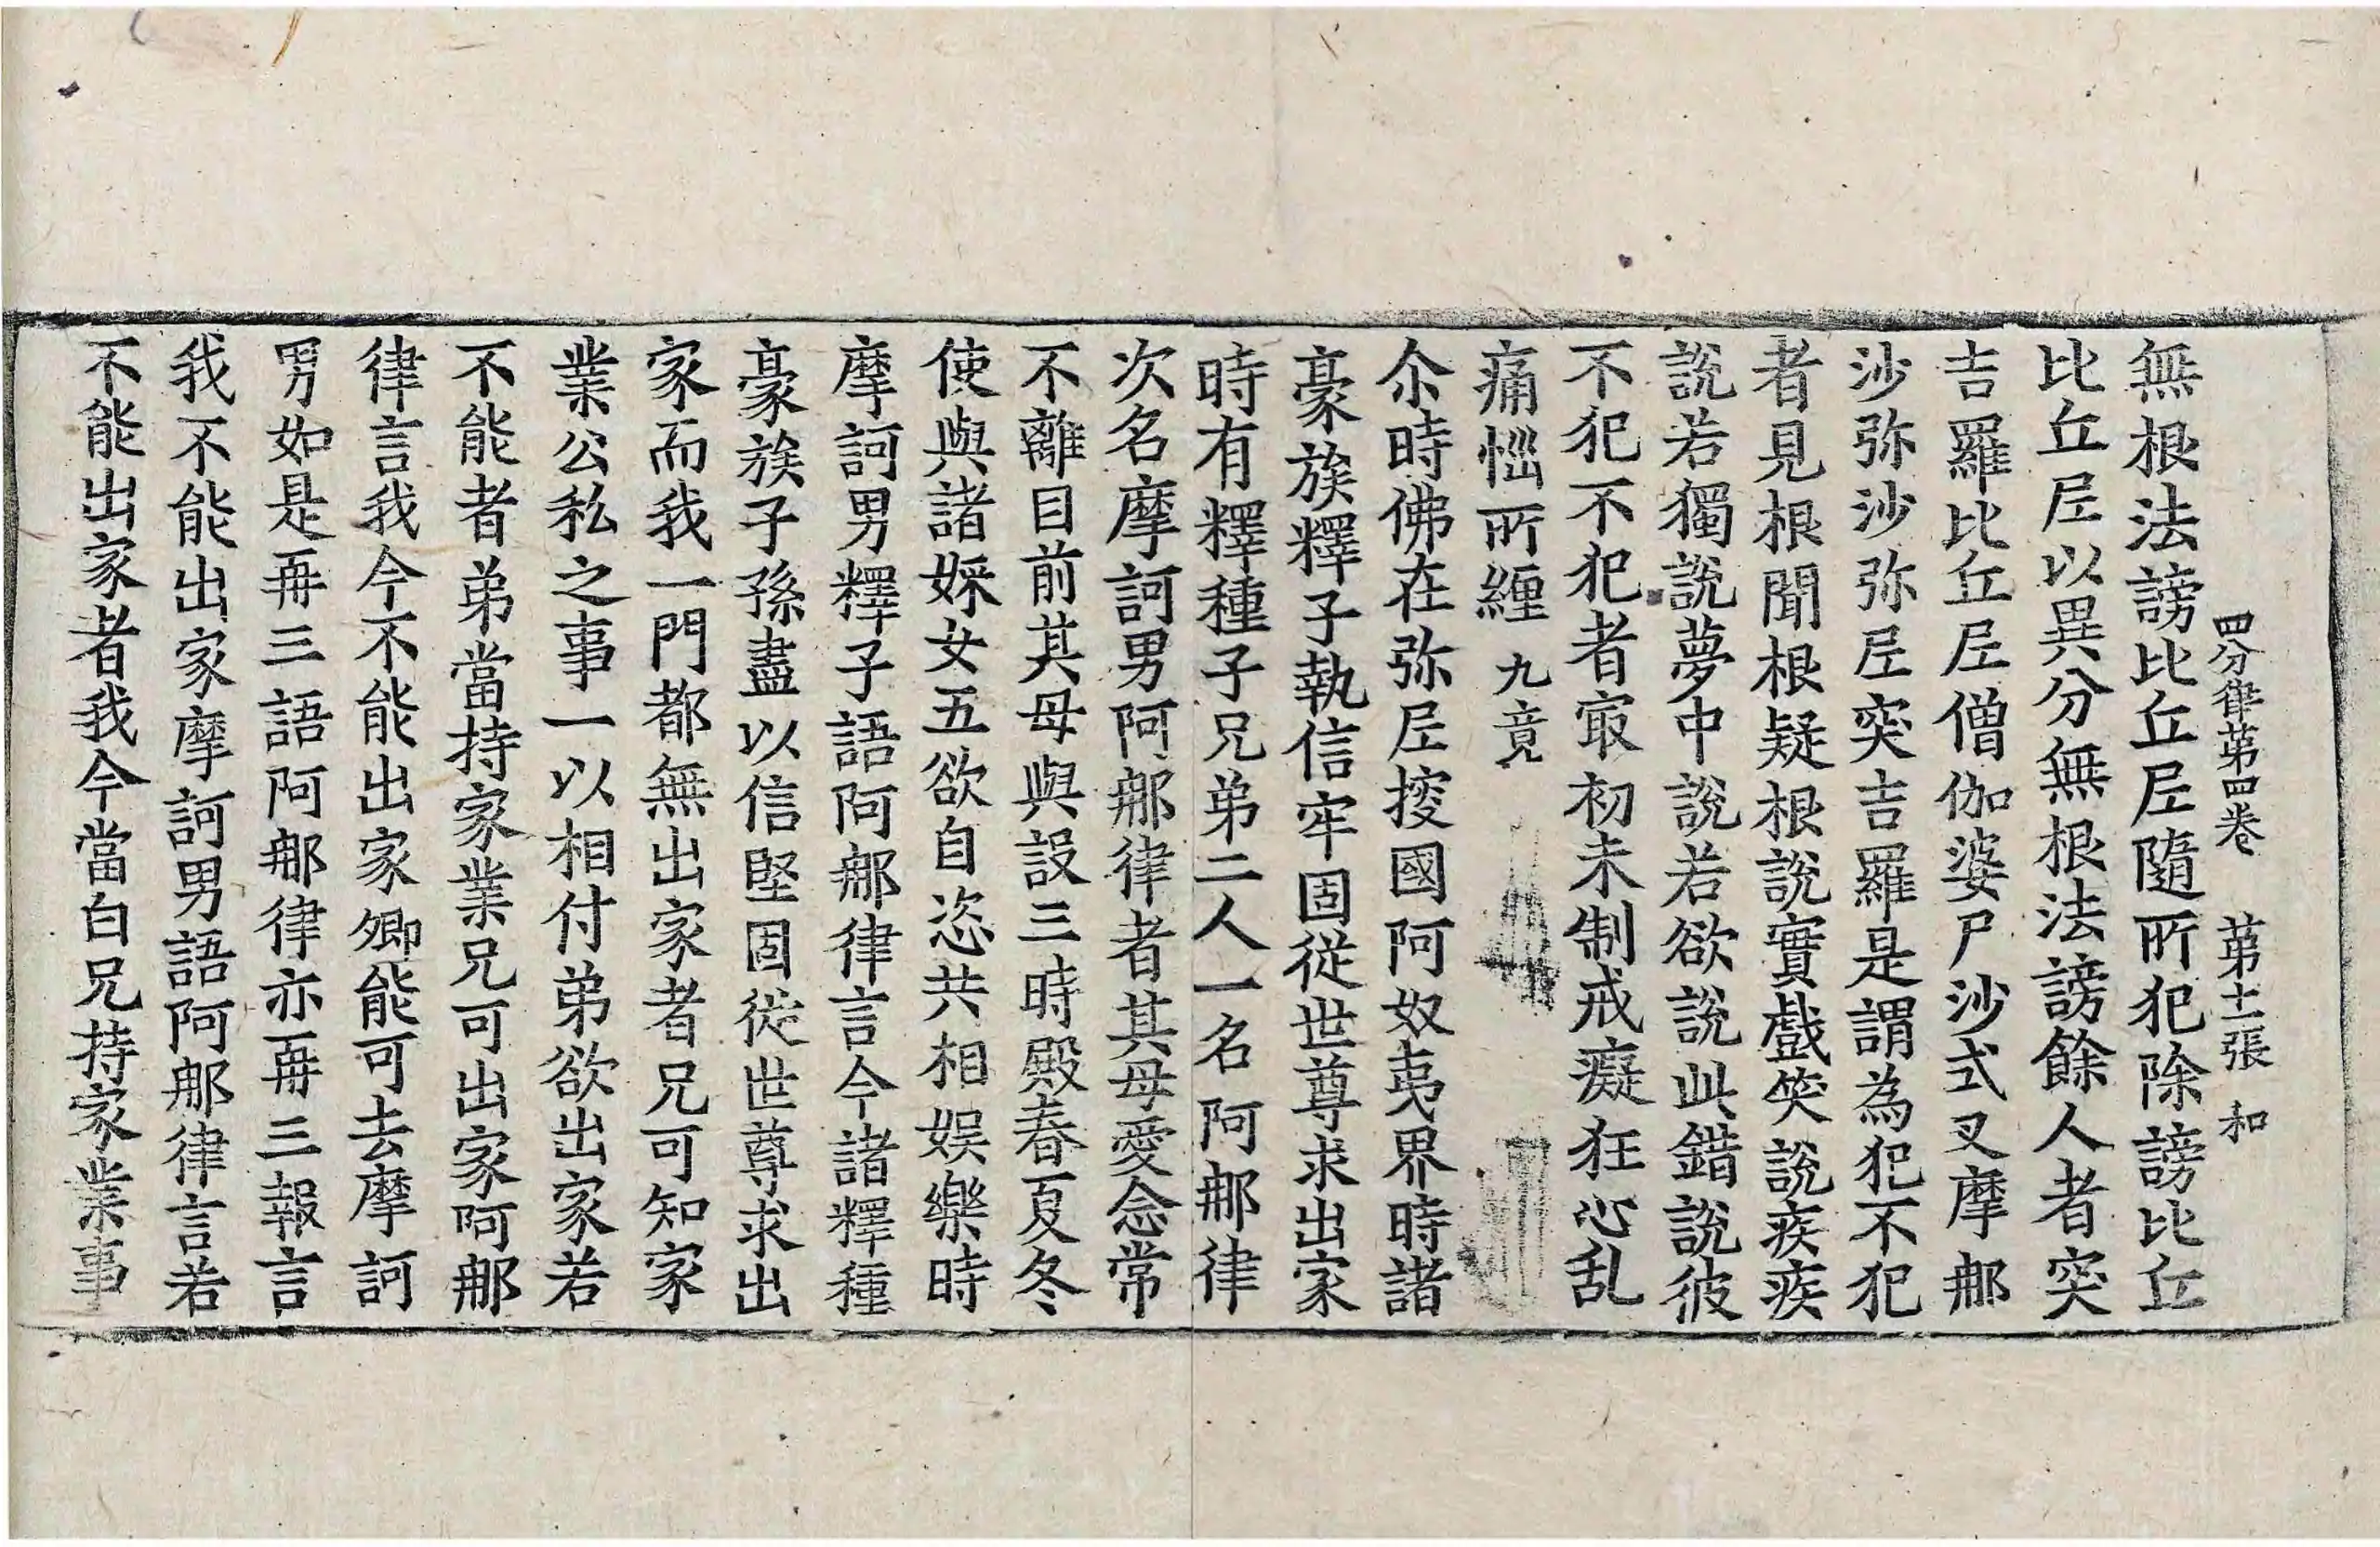 四分律第四卷　第十二張　和
無根法謗比丘尼隨所犯除謗比丘
比丘尼以異分無根法謗餘人者突
吉羅比丘尼僧伽婆尸沙式叉摩那
沙弥沙弥尼突吉羅是謂為犯不犯
者見根聞根疑根說實戲笑說疾疾
說若獨說夢中說若欲說此錯說彼
不犯不犯者㝡初未制戒癡狂心乱
痛惱所纏　九竟
尒時佛在弥尼授國阿奴夷界時諸
豪族釋子執信牢固從世尊求出家
時有釋種子兄弟二人一名阿那律
次名摩訶男阿那律者其母愛念常
不離目前其母與設三時殿春夏冬
使與諸婇女五欲自恣共相娛樂時
摩訶男釋子語阿那律言今諸釋種
豪族子孫盡以信堅固從世尊求出
家而我一門都無出家者兄可知家
業公私之事一以相付弟欲出家若
不能者弟當持家業兄可出家阿那
律言我今不能出家卿能可去摩訶
男如是再三語阿那律亦再三報言
我不能出家摩訶男語阿那律言若
不能出家者我今當白兄持家業事